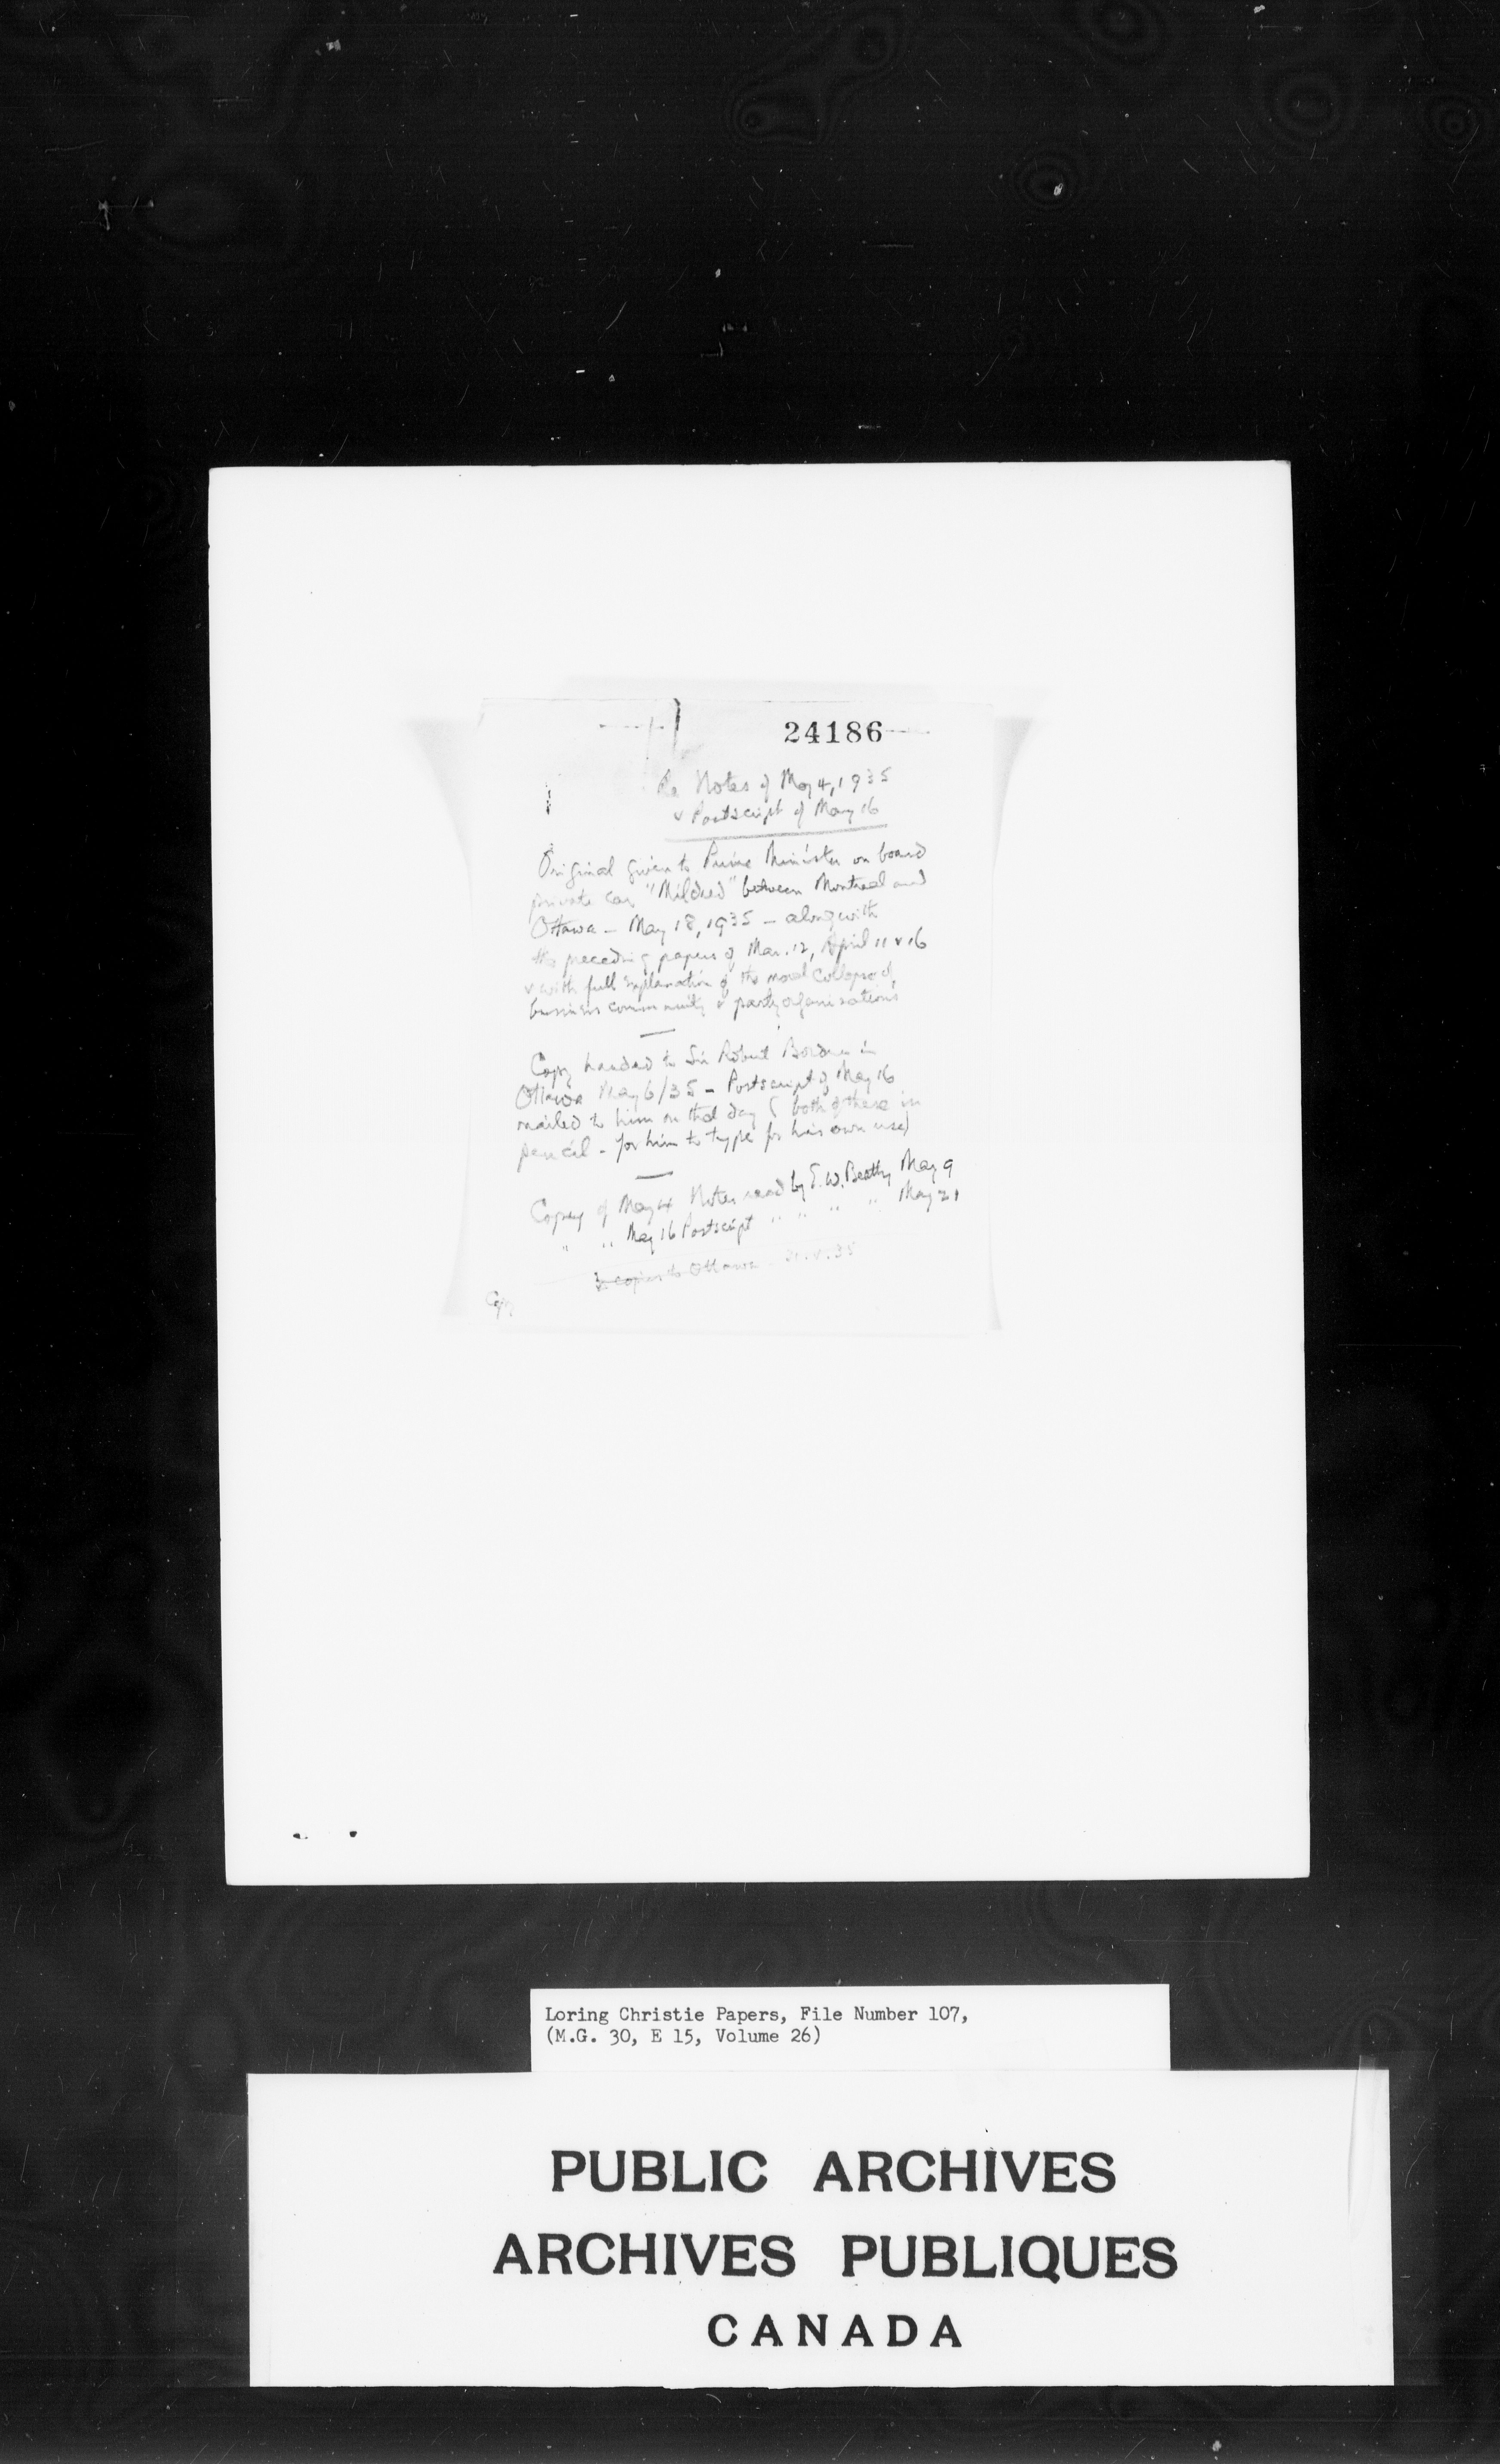 24186
Re Notes of May 4, 1935
& Postscript of May 16
Original given to Prime Minister on board
private car "Mildred" between Montreal and
Ottawa - May 18, 1935 - along with
the preceding papers of Mar. 12, April 11 & 16
& with full explanation of the moral collapse of
business community & party organizations
Copy handed to Sir Robert Borden in
Ottawa May 6/35 - Postscript of May 16
mailed to him on that day (both of these in
pencil - for him to type for his own use)
Copy of May 4 Notes read by E.W. Beatty May 9
" " May 16 Postscript " " " " May 21
copies to Ottawa
Copy
Loring Christie Papers, File Number 107,
(M.G. 30, E 15, Volume 26)
PUBLIC ARCHIVES
ARCHIVES PUBLIQUES
CANADA